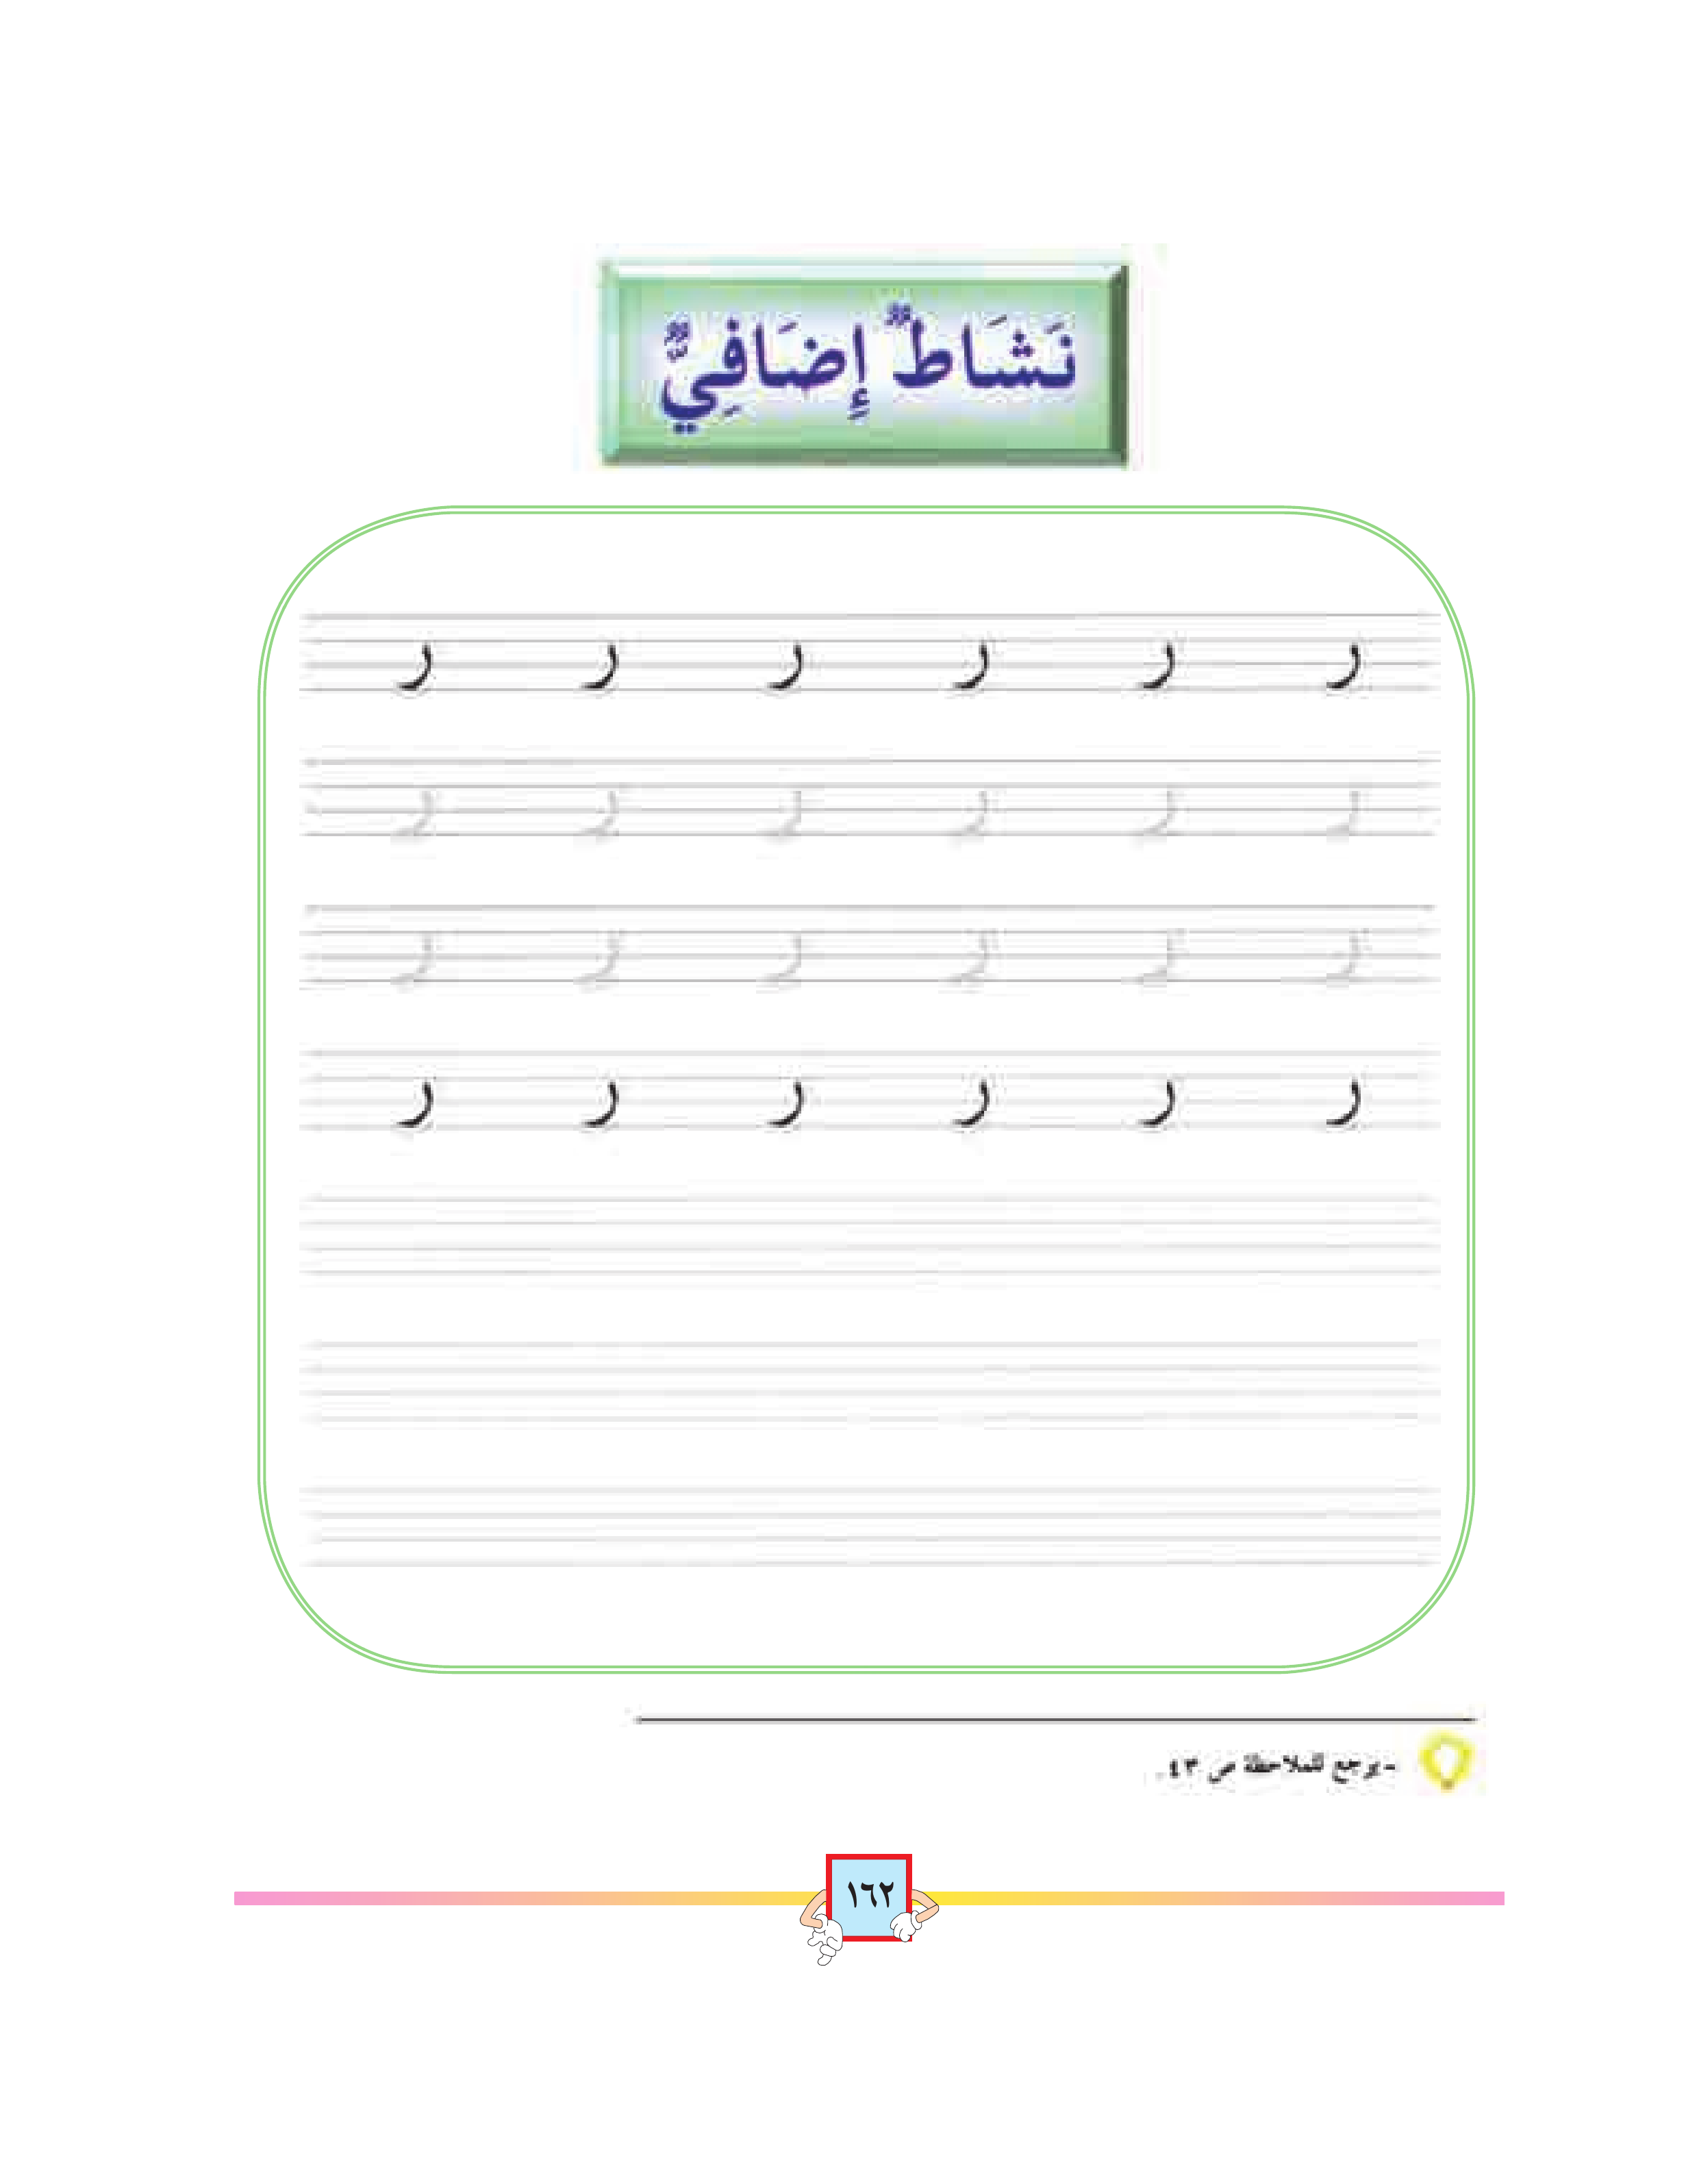 نَشَاطٌ إِضَافِيٌّ
ر ر ر ر ر ر
ر ر ر ر ر ر
ر ر ر ر ر ر
ر ر ر ر ر ر
- يرجع للملاحظة ص ٤٣.
١٦٢